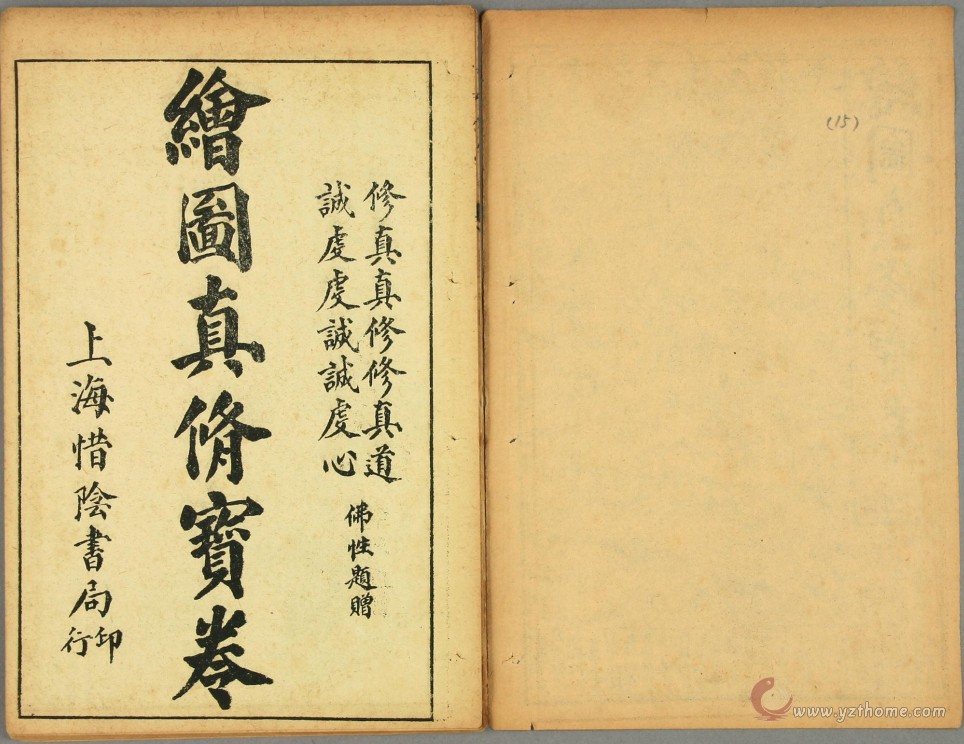 (15)
修真真修修真道
誠虔虔誠誠虔心
佛性題贈
繪圖真脩寶卷
上海惜陰書局印行
www.yzthome.com